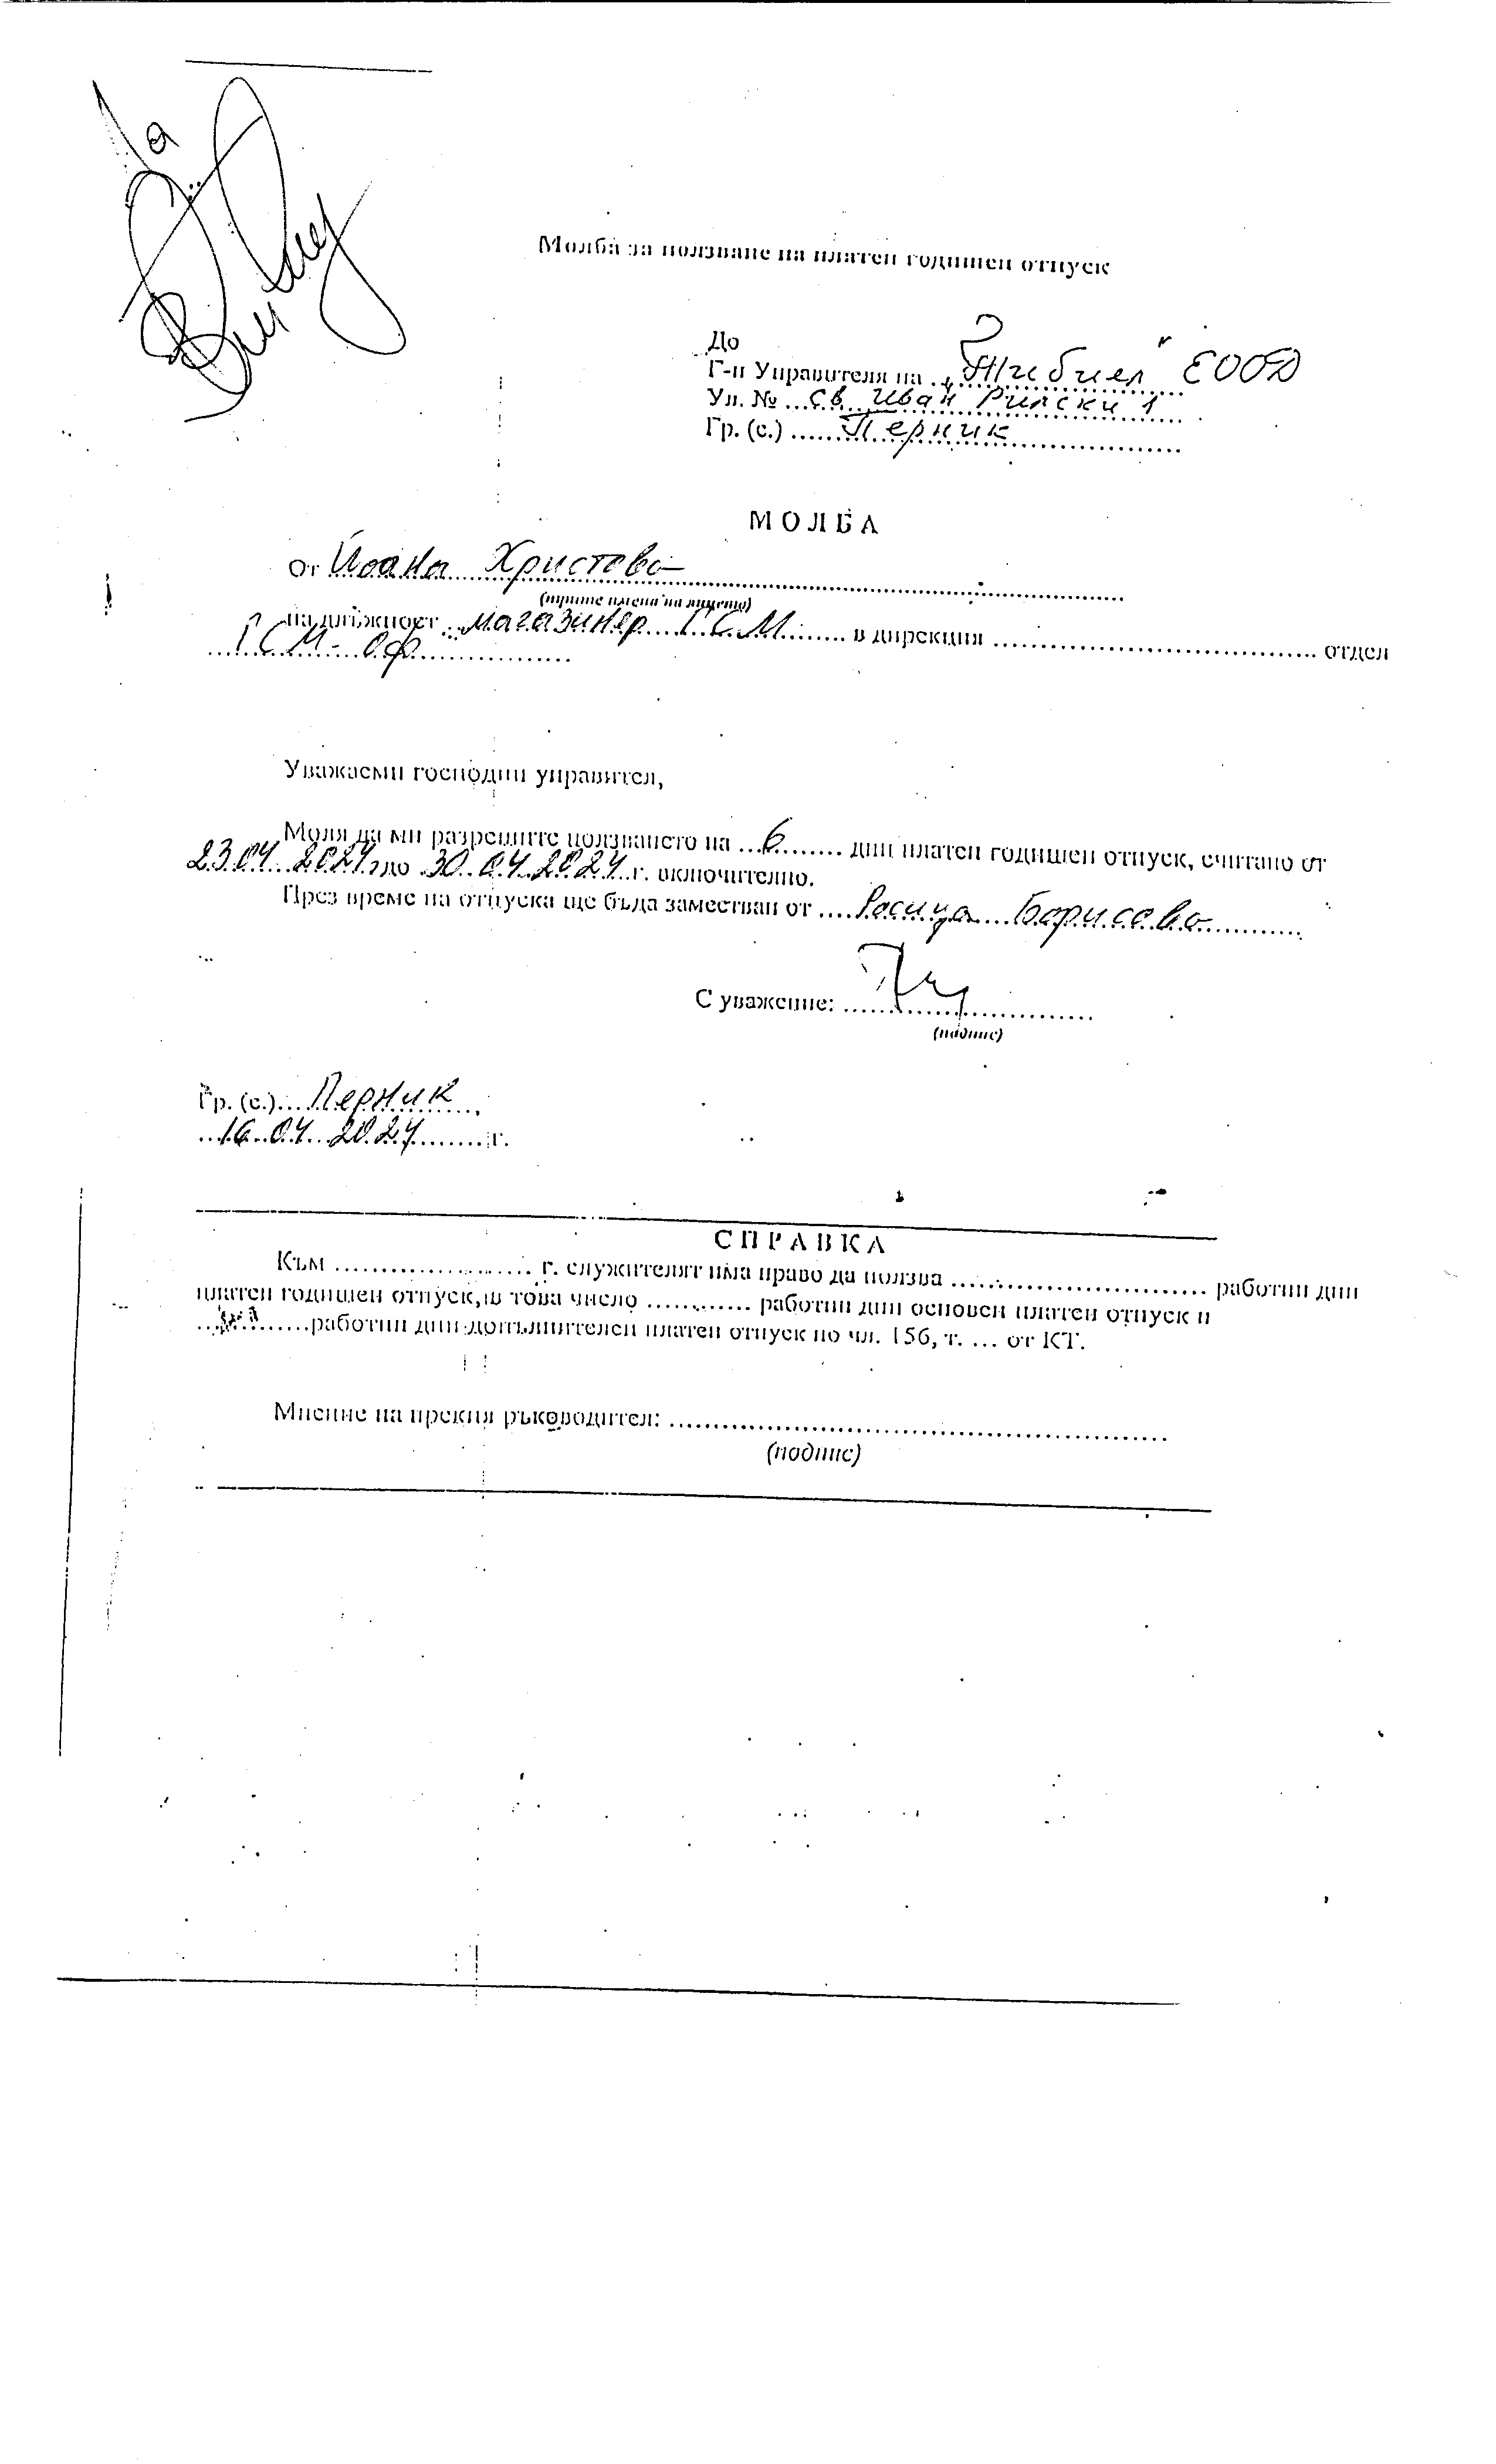 Да
Молба за ползване на платен годишен отпуск
До
Г-н Управителя на „Жибиел" ЕООД
Ул. № Св Иван Рилски 1
Гр. (с.) Перник
МОЛБА
От Йоана Христова
(трите имена на лицето)
на длъжност магазинер ГСМ в дирекция отдел
ГСМ - оф
Уважаеми господин управител,
Моля да ми разрешите ползването на 6 дни платен годишен отпуск, считано от
23.04.2024 г. до 30.04.2024 г. включително.
През време на отпуска ще бъда заместван от Росица Борисова
С уважение:
(подпис)
Гр. (с.) Перник
16.04.2024 г.
СПРАВКА
Към г. служителят има право да ползва работни дни
платен годишен отпуск, в това число работни дни основен платен отпуск и
работни дни допълнителен платен отпуск по чл. 156, т. ... от КТ.
Мнение на прекия ръководител:
(подпис)